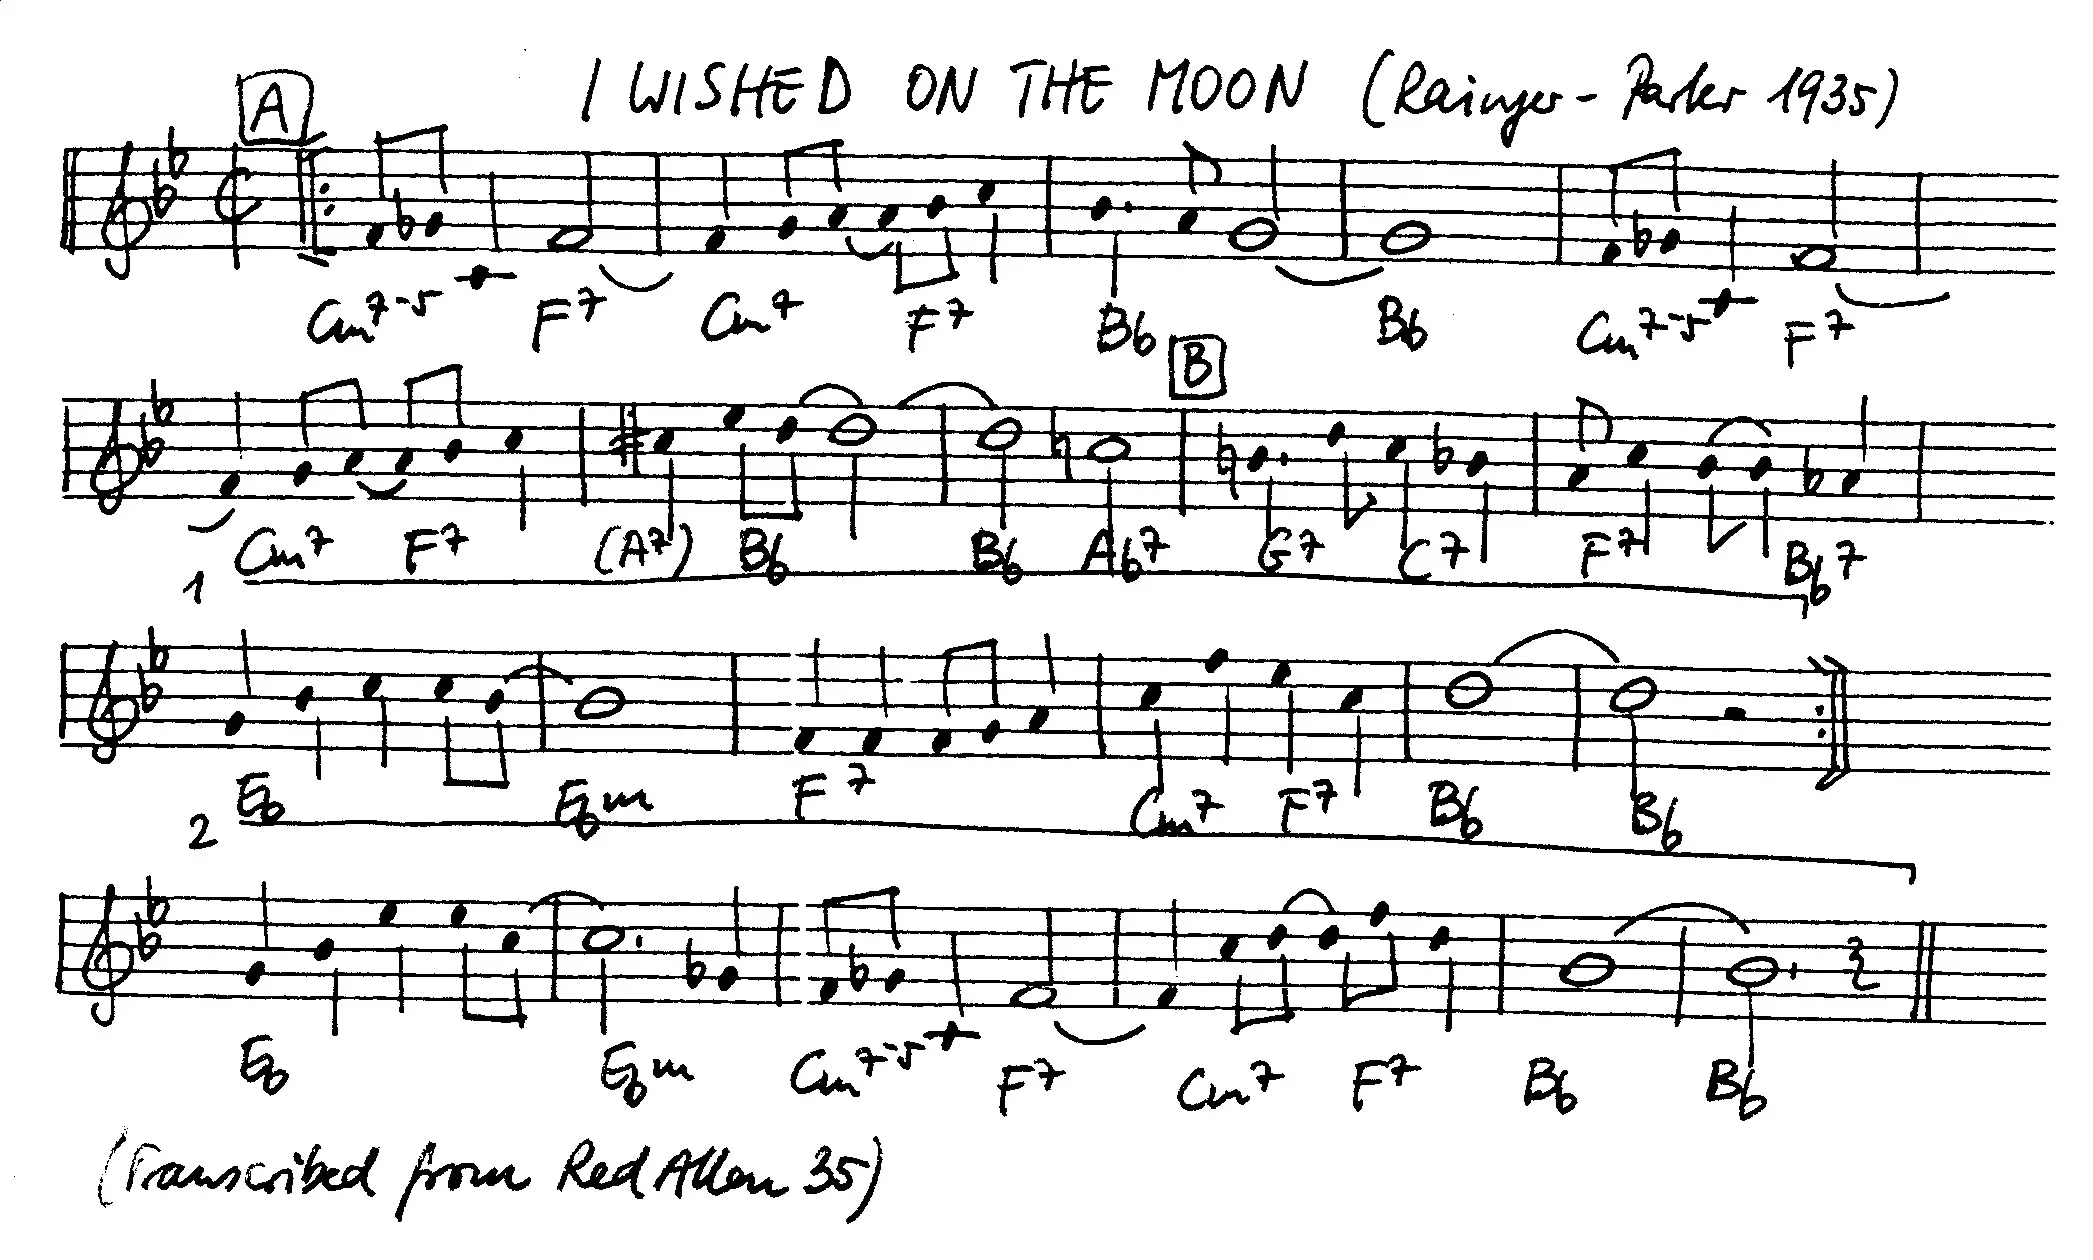 A I WISHED ON THE MOON (Rainger - Parker 1935)
Cm7-5 F7 Cm7 F7 Bb Bb Cm7-5 F7
B
Cm7 F7 (A7) Bb Bb Ab7 G7 C7 F7 Bb7
1
Eb Ebm F7 Cm7 F7 Bb Bb
2
Eb Ebm Cm7-5 F7 Cm7 F7 Bb Bb
(Transcribed from Red Allen 35)